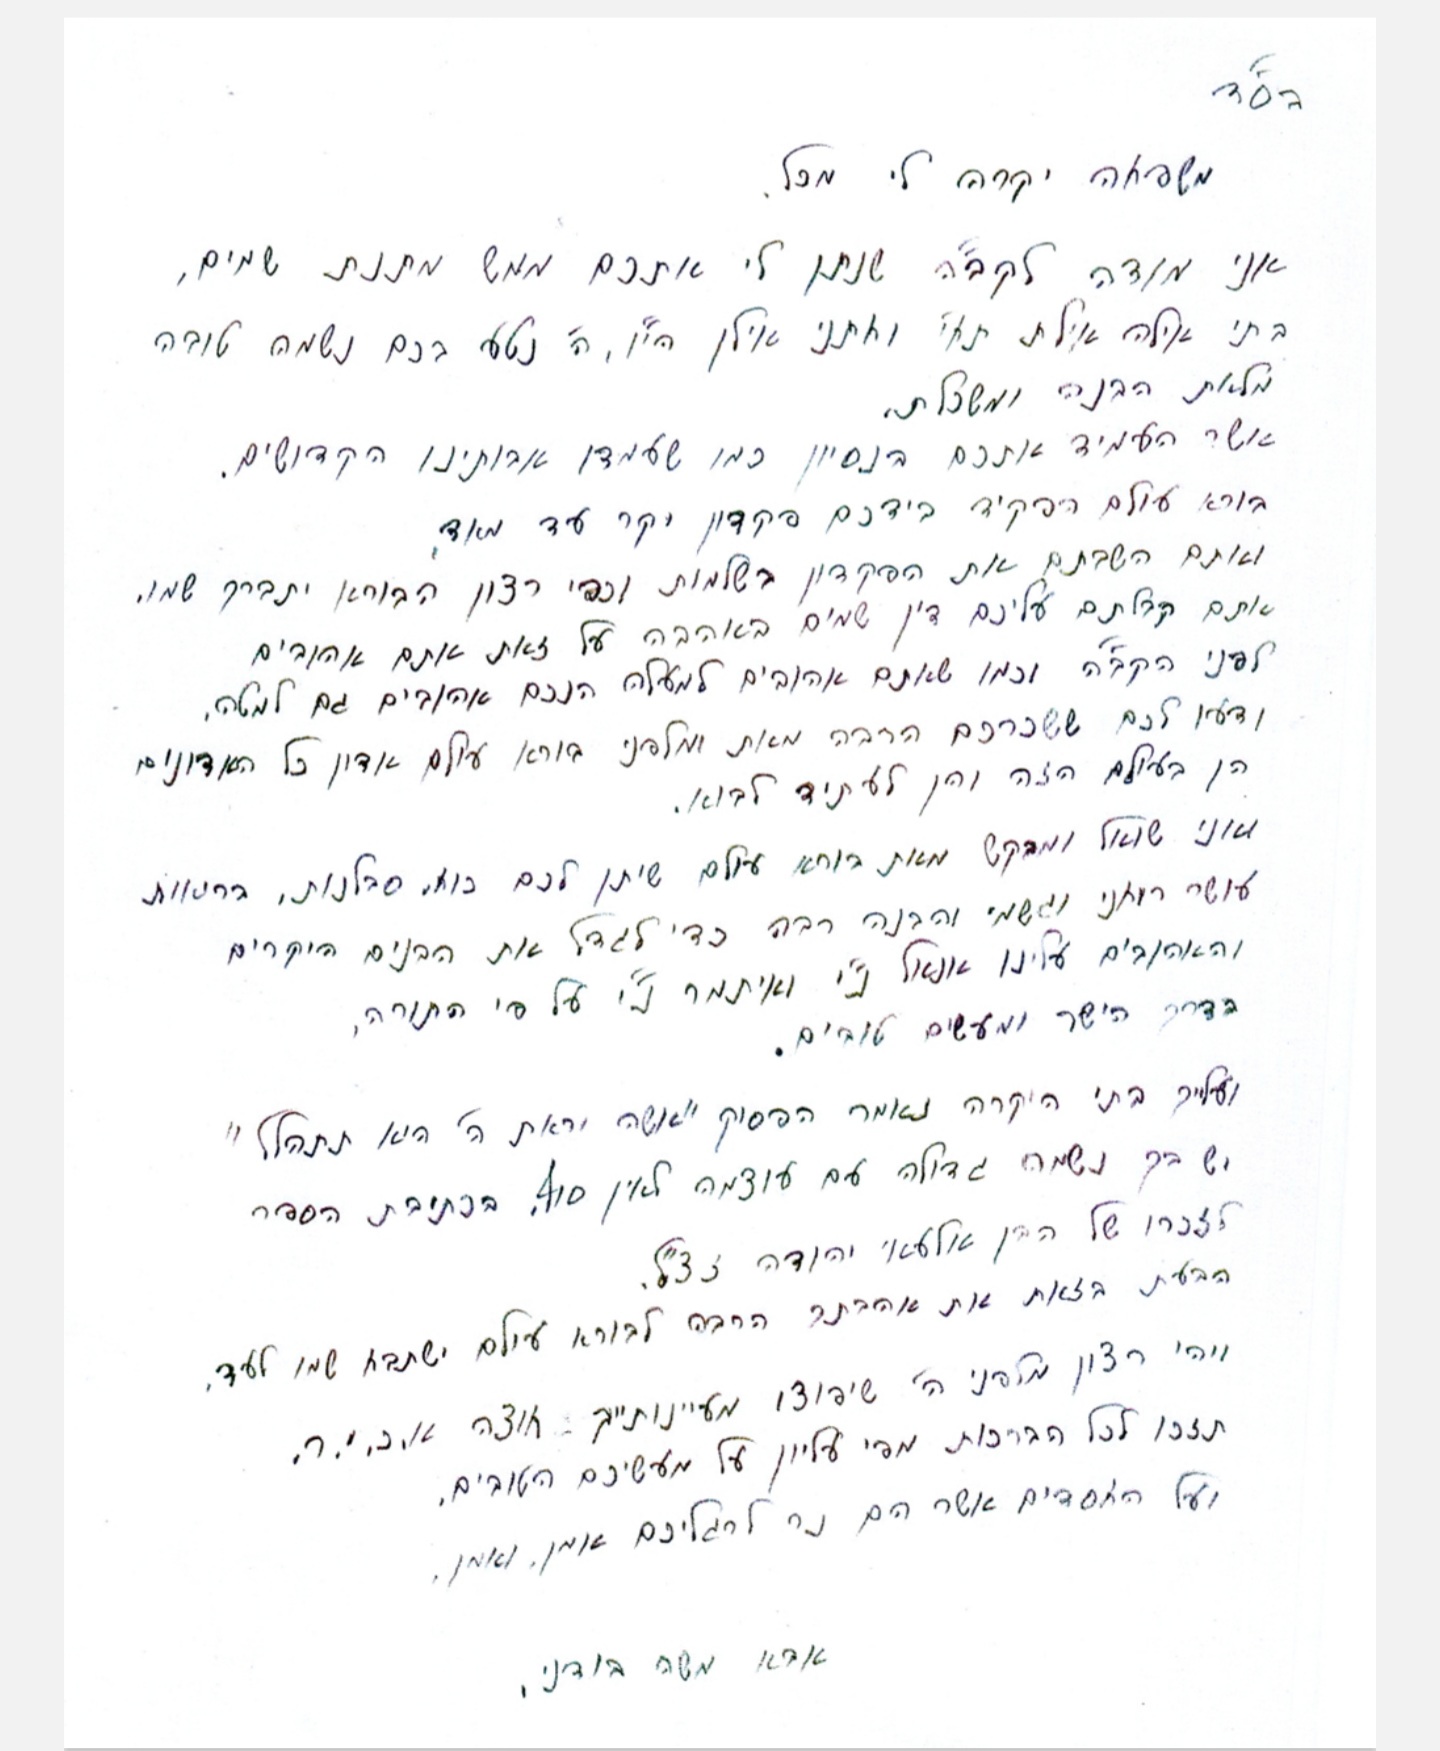 בס"ד
משפחה יקרה לי מכל.
אני מודה לקב"ה שנתן לי אתכם ממש מתנת שמים,
בתי אילה אילת תחי' וחתני אילן הי"ו, ה' נטע בכם נשמה טובה
מלאת הבנה ומשכלת.
אשר העמיד אתכם בנסיון כמו שעמדו אבותינו הקדושים.
בורא עולם הפקיד בידכם פקדון יקר עד מאד,
ואתם השבתם את הפקדון בשלמות וכפי רצון הבורא יתברך שמו.
אתם קבלתם עליכם דין שמים באהבה על זאת אתם אהובים
לפני הקב"ה וכמו שאתם אהובים למעלה הנכם אהובים גם למטה.
ודעו לכם ששכרכם הרבה מאת ומלפני בורא עולם אדון כל האדונים
הן בעולם הזה והן לעתיד לבוא.
ואני שואל ומבקש מאת בורא עולם שיתן לכם כוח, סבלנות, בריאות
עושר רוחני וגשמי והבנה רבה כדי לגדל את הבנים היקרים
והאהובים עלינו אנאל נ"י ואיתמר נ"י על פי התורה,
בדרך הישר ומעשים טובים.
ועלייך בתי היקרה נאמר הפסוק "אשה יראת ה' היא תתהלל"
יש בך נשמה גדולה עם עוצמה לאין סוף, בכתיבת הספר
לזכרו של הבן אלעאי יהודה זצ"ל.
הבעת בזאת את אהבתך הרבה לבורא עולם ישתבח שמו לעד.
ויהי רצון מלפני ה' שיפוצו מעיינותייך חוצה א.כ.י.ר.
תזכו לכל הברכות מפי עליון על מעשיכם הטובים.
ועל החסדים אשר הם נר לרגליכם אמן, ואמן.
אבא משה בודני,